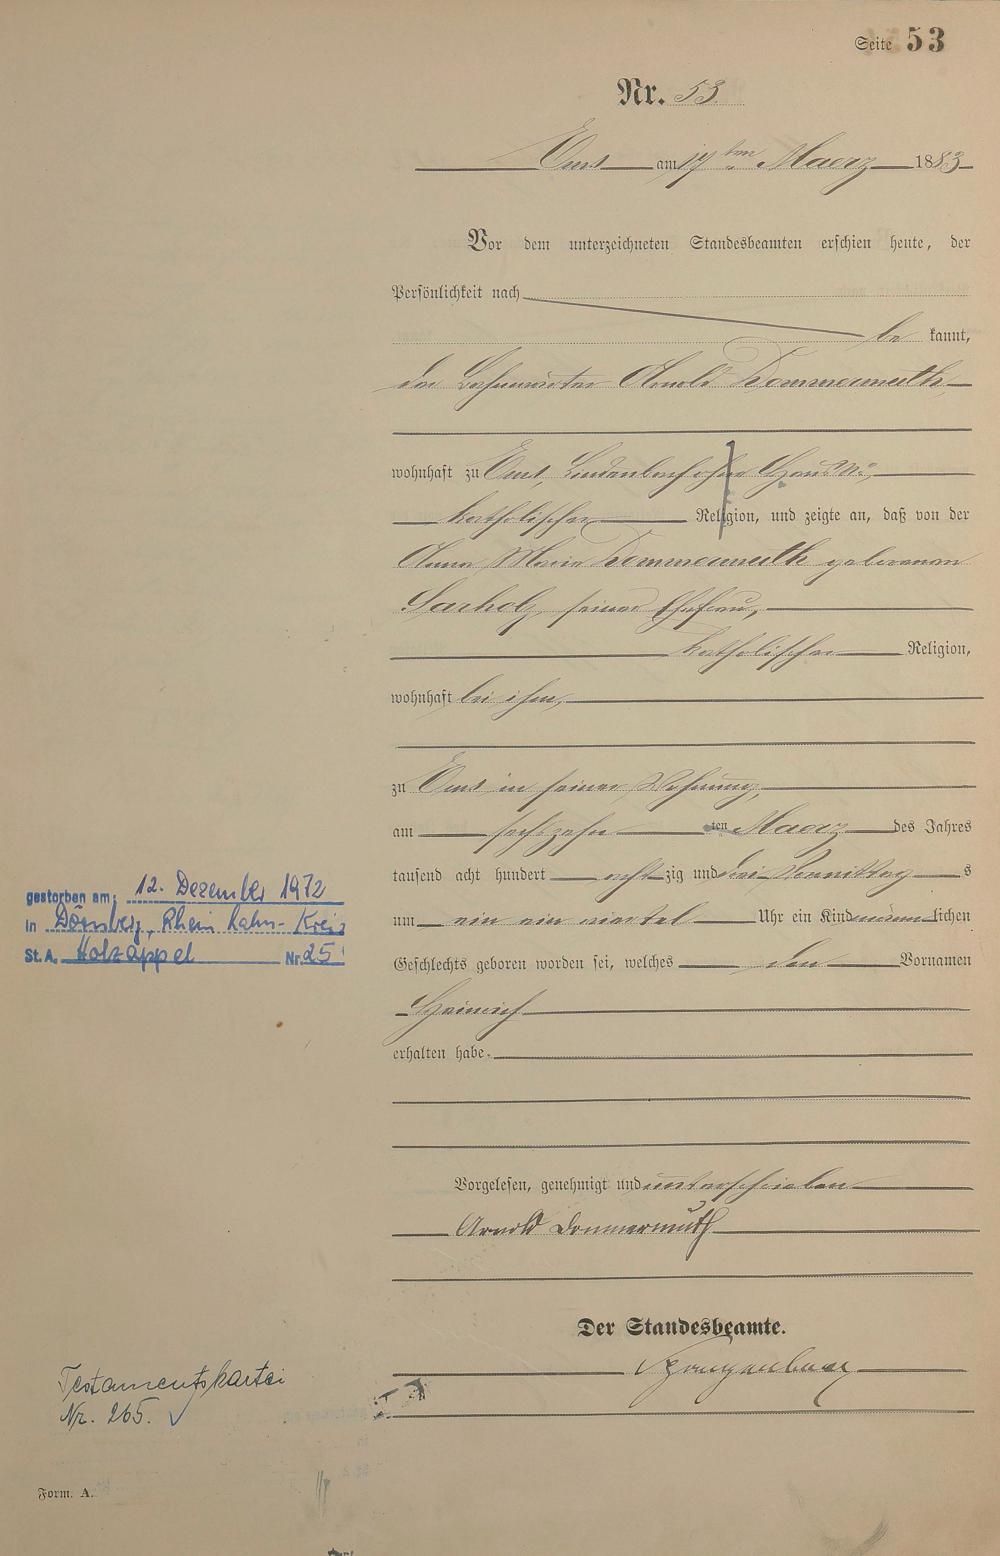 Seite 53
Nr. 53
Ems am 17ten Maerz 1883
Vor dem unterzeichneten Standesbeamten erschien heute, der
Persönlichkeit nach
be kannt,
der Bahnwärter Arnold Dommermuth,
wohnhaft zu Ems, Lindenbach ohne Haus No,
katholischer Religion, und zeigte an, daß von der
Anna Maria Dommermuth geborenen
Sarholz, seiner Ehefrau,
katholischer Religion,
wohnhaft bei ihm,
zu Ems in seiner Wohnung,
am sechszehn ten Maerz des Jahres
tausend acht hundert acht zig und drei Vormittag s
um ein ein viertel Uhr ein Kind männ lichen
Geschlechts geboren worden sei, welches den Vornamen
Heinrich
erhalten habe.
Vorgelesen, genehmigt und unterschrieben
Arnold Dommermuth
Der Standesbeamte.
gestorben am: 12. Dezember 1972
in Dörnberg, Rhein Lahn-Kreis
St.A. Holzappel Nr. 25
Testamentskartei
Nr. 265.
Form. A.